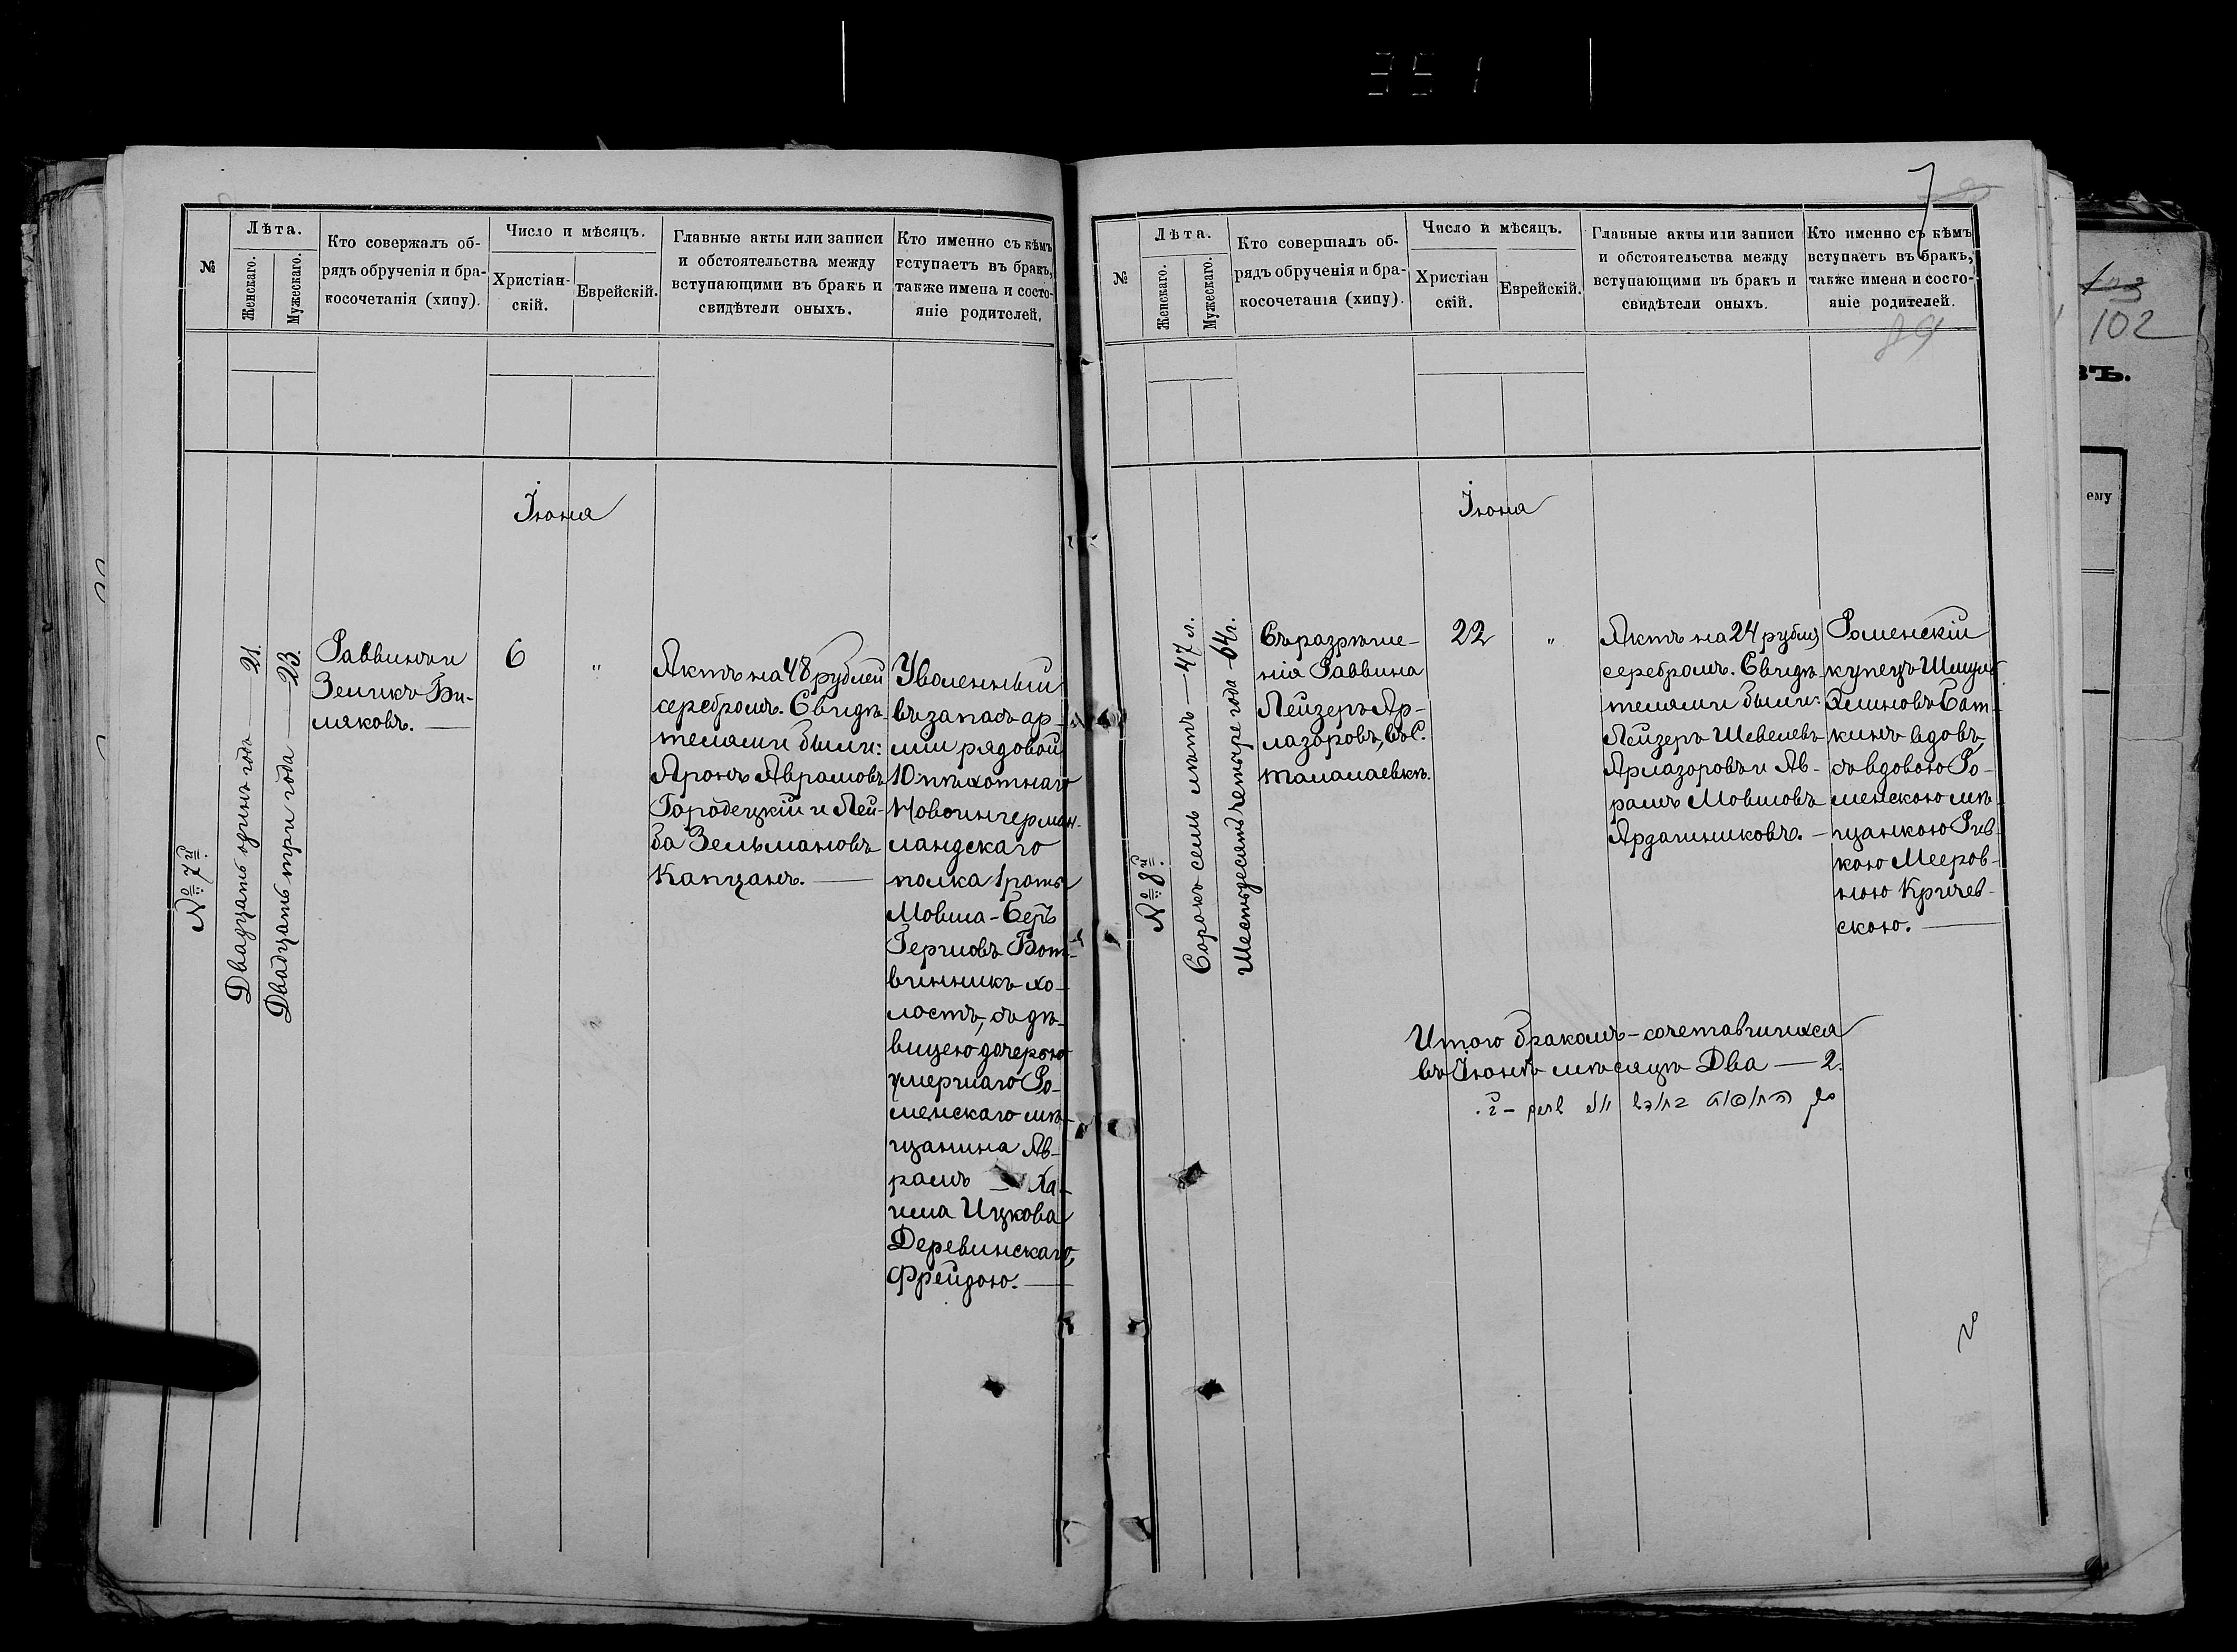 351
№
Лѣта.
Женскаго.
Мужескаго.
Кто совержалъ об-
рядъ обрученія и бра-
косочетанія (хипу).
Число и мѣсяцъ.
Христіан-
скій.
Еврейскій.
Главные акты или записи
и обстоятельства между
вступающими въ бракъ и
свидѣтели оныхъ.
Кто именно съ кѣмъ
вступаетъ въ бракъ,
также имена и состо-
яніе родителей.
Іюня
№ 7й.
Двадцать одинъ годъ — 21.
Двадцать три года — 23.
Раввинъ
Зеликъ Би-
ляковъ. —
6
"
Актъ на 48 рублей
серебромъ. Свидѣ-
телями были:
Аронъ Аврамовъ
Городецкій и Лей-
ба Зельмановъ
Капцанъ. —
Уволенный
въ запасъ ар-
міи рядовой
10 пѣхотнаго
Новоингерман-
ландскаго
полка 1 роты
Мовша-Беръ
Гершовъ Бот-
винникъ хо-
лостъ, съ дѣ-
вицею дочерью
умершаго Ро-
менскаго мѣ-
щанина Ав-
рамъ — Ха-
има Ицкова
Деревинскаго,
Фрейдою. —
7
№
Лѣта.
Женскаго.
Мужескаго.
Кто совершалъ об-
рядъ обрученія и бра-
косочетанія (хипу).
Число и мѣсяцъ.
Христіан
скій.
Еврейскій.
Главные акты или записи
и обстоятельства между
вступающими въ бракъ и
свидѣтели оныхъ.
Кто именно съ кѣмъ
вступаетъ въ бракъ,
также имена и состо-
яніе родителей.
Іюня
№ 8й.
Сорокъ семь лѣтъ — 47 л.
Шестьдесятъ четыре года — 64 г.
Съ разрѣше-
нія Раввина
Лейзеръ Ар-
лазоровъ, въ С.
Талалаевкѣ.
22
"
Актъ на 24 рубля
серебромъ. Свидѣ-
телями были:
Лейзеръ Шевелевъ
Арлазоровъ и Ав-
рамъ Мовшовъ
Ардашниковъ. —
Роменскій
купецъ Шмуль
Залмановъ Бат-
кинъ вдовъ,
съ вдовою Ро-
менскою мѣ-
щанкою Рив-
кою Мееров-
ною Кричев-
скою. —
Итого бракомъ-сочетавшихся
въ Іюнѣ мѣсяцѣ Два — 2.
102
въ.
ему